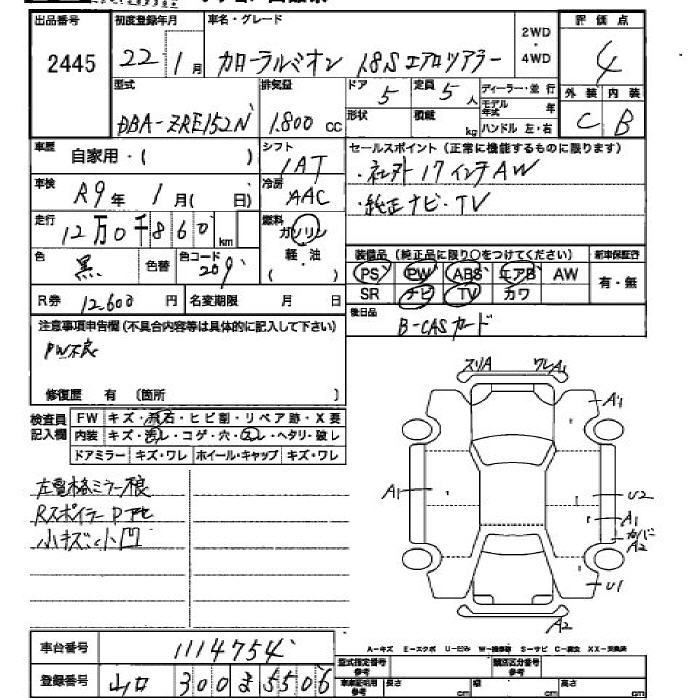 出品番号 初度登録年月 車名・グレード 評価点
2445 22年1月 カローラルミオン 1.8S エアロツアラー 2WD・4WD 4
型式 排気量 ドア 5 定員 5人 ディーラー・並行 外装 内装
DBA-ZRE152N 1.800cc 形状 積載 kg モデル年式 年 ハンドル 左・右 C B
車歴 自家用・( ) シフト 1AT セールスポイント(正常に機能するものに限ります)
車検 R9年1月( 日) 冷房 AAC ・社外17インチAW
走行 12万0千860km 燃料 ガソリン 軽・油 ( ) ・純正ナビ・TV
色 黒 色替 色コード 209 装備品(純正品に限り○をつけてください) 新車保証書
PS PW ABS エアB AW 有・無
R券 12600円 名変期限 月 日 SR ナビ TV カワ
注意事項申告欄(不具合内容等は具体的に記入して下さい) 後日品 B-CASカード
PW不良
修復歴 有 〔箇所 〕
検査員記入欄 FW キズ・飛石・ヒビ割・リペア跡・X要
内装 キズ・汚レ・コゲ・穴・スレ・ヘタリ・破レ
ドアミラー キズ・ワレ ホイール・キャップ キズ・ワレ
スリA ワレA1
A1
A1 U2
A1
A2
U1
A2
左電格ミラー不良
Rスポイラー
小キズ小凹
車台番号 1114754
登録番号 山口 300 ま 5506
A-キズ E-エクボ U-凹み W-補修跡 S-サビ C-腐食 XX-交換済
型式指定番号 参考 類別区分番号 参考
車庫証明用 参考 長さ cm 幅 cm 高さ cm